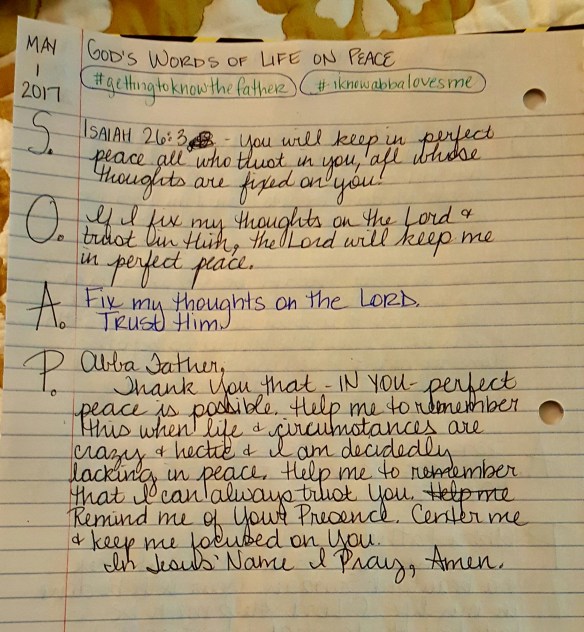 MAY
1
2017
GOD'S WORDS OF LIFE ON PEACE
#gettingtoknowthefather #iknowabbalovesme
S. ISAIAH 26:3 - you will keep in perfect
peace all who trust in you, all whose
thoughts are fixed on you!
O. If I fix my thoughts on the Lord &
trust in Him, the Lord will keep me
in perfect peace.
A. Fix my thoughts on the LORD.
Trust Him.
P. Abba Father,
Thank You that - IN YOU - perfect
peace is possible. Help me to remember
this when life & circumstances are
crazy & hectic & I am decidedly
lacking in peace. Help me to remember
that I can always trust You. Help me
Remind me of Your Presence. Center me
& keep me focused on You.
In Jesus' Name I Pray, Amen.